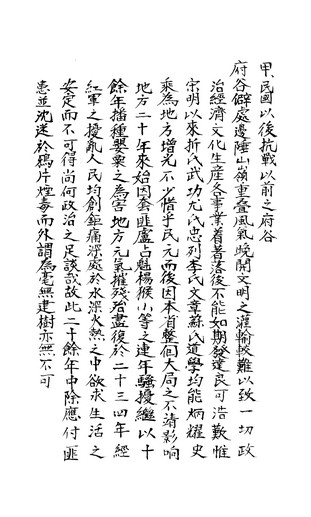 甲、民國以後抗戰以前之府谷
府谷僻處邊陲山嶺重叠風氣晚開文明之灌輸較難以致一切政
治經濟文化生產各事業着着落後不能如期發達良可浩歎惟
宋明以來折氏武功尤氏忠烈李氏文章蘇氏道學均能炳耀史
乘為地方增光不少惜乎民元而後因本省整個大局之不清影响
地方二十年來始因套匪盧占魁楊猴小等之連年騷擾繼以十
餘年播種罌粟之為害地方元氣摧殘殆盡後於二十三四年經
紅軍之擾亂人民均創鉅痛深處於水深火熱之中欲求生活之
安定而不可得尚何政治之足談哉故此二十餘年中除應付匪
患並沈迷於鴉片煙毒而外謂為毫無建樹亦無不可